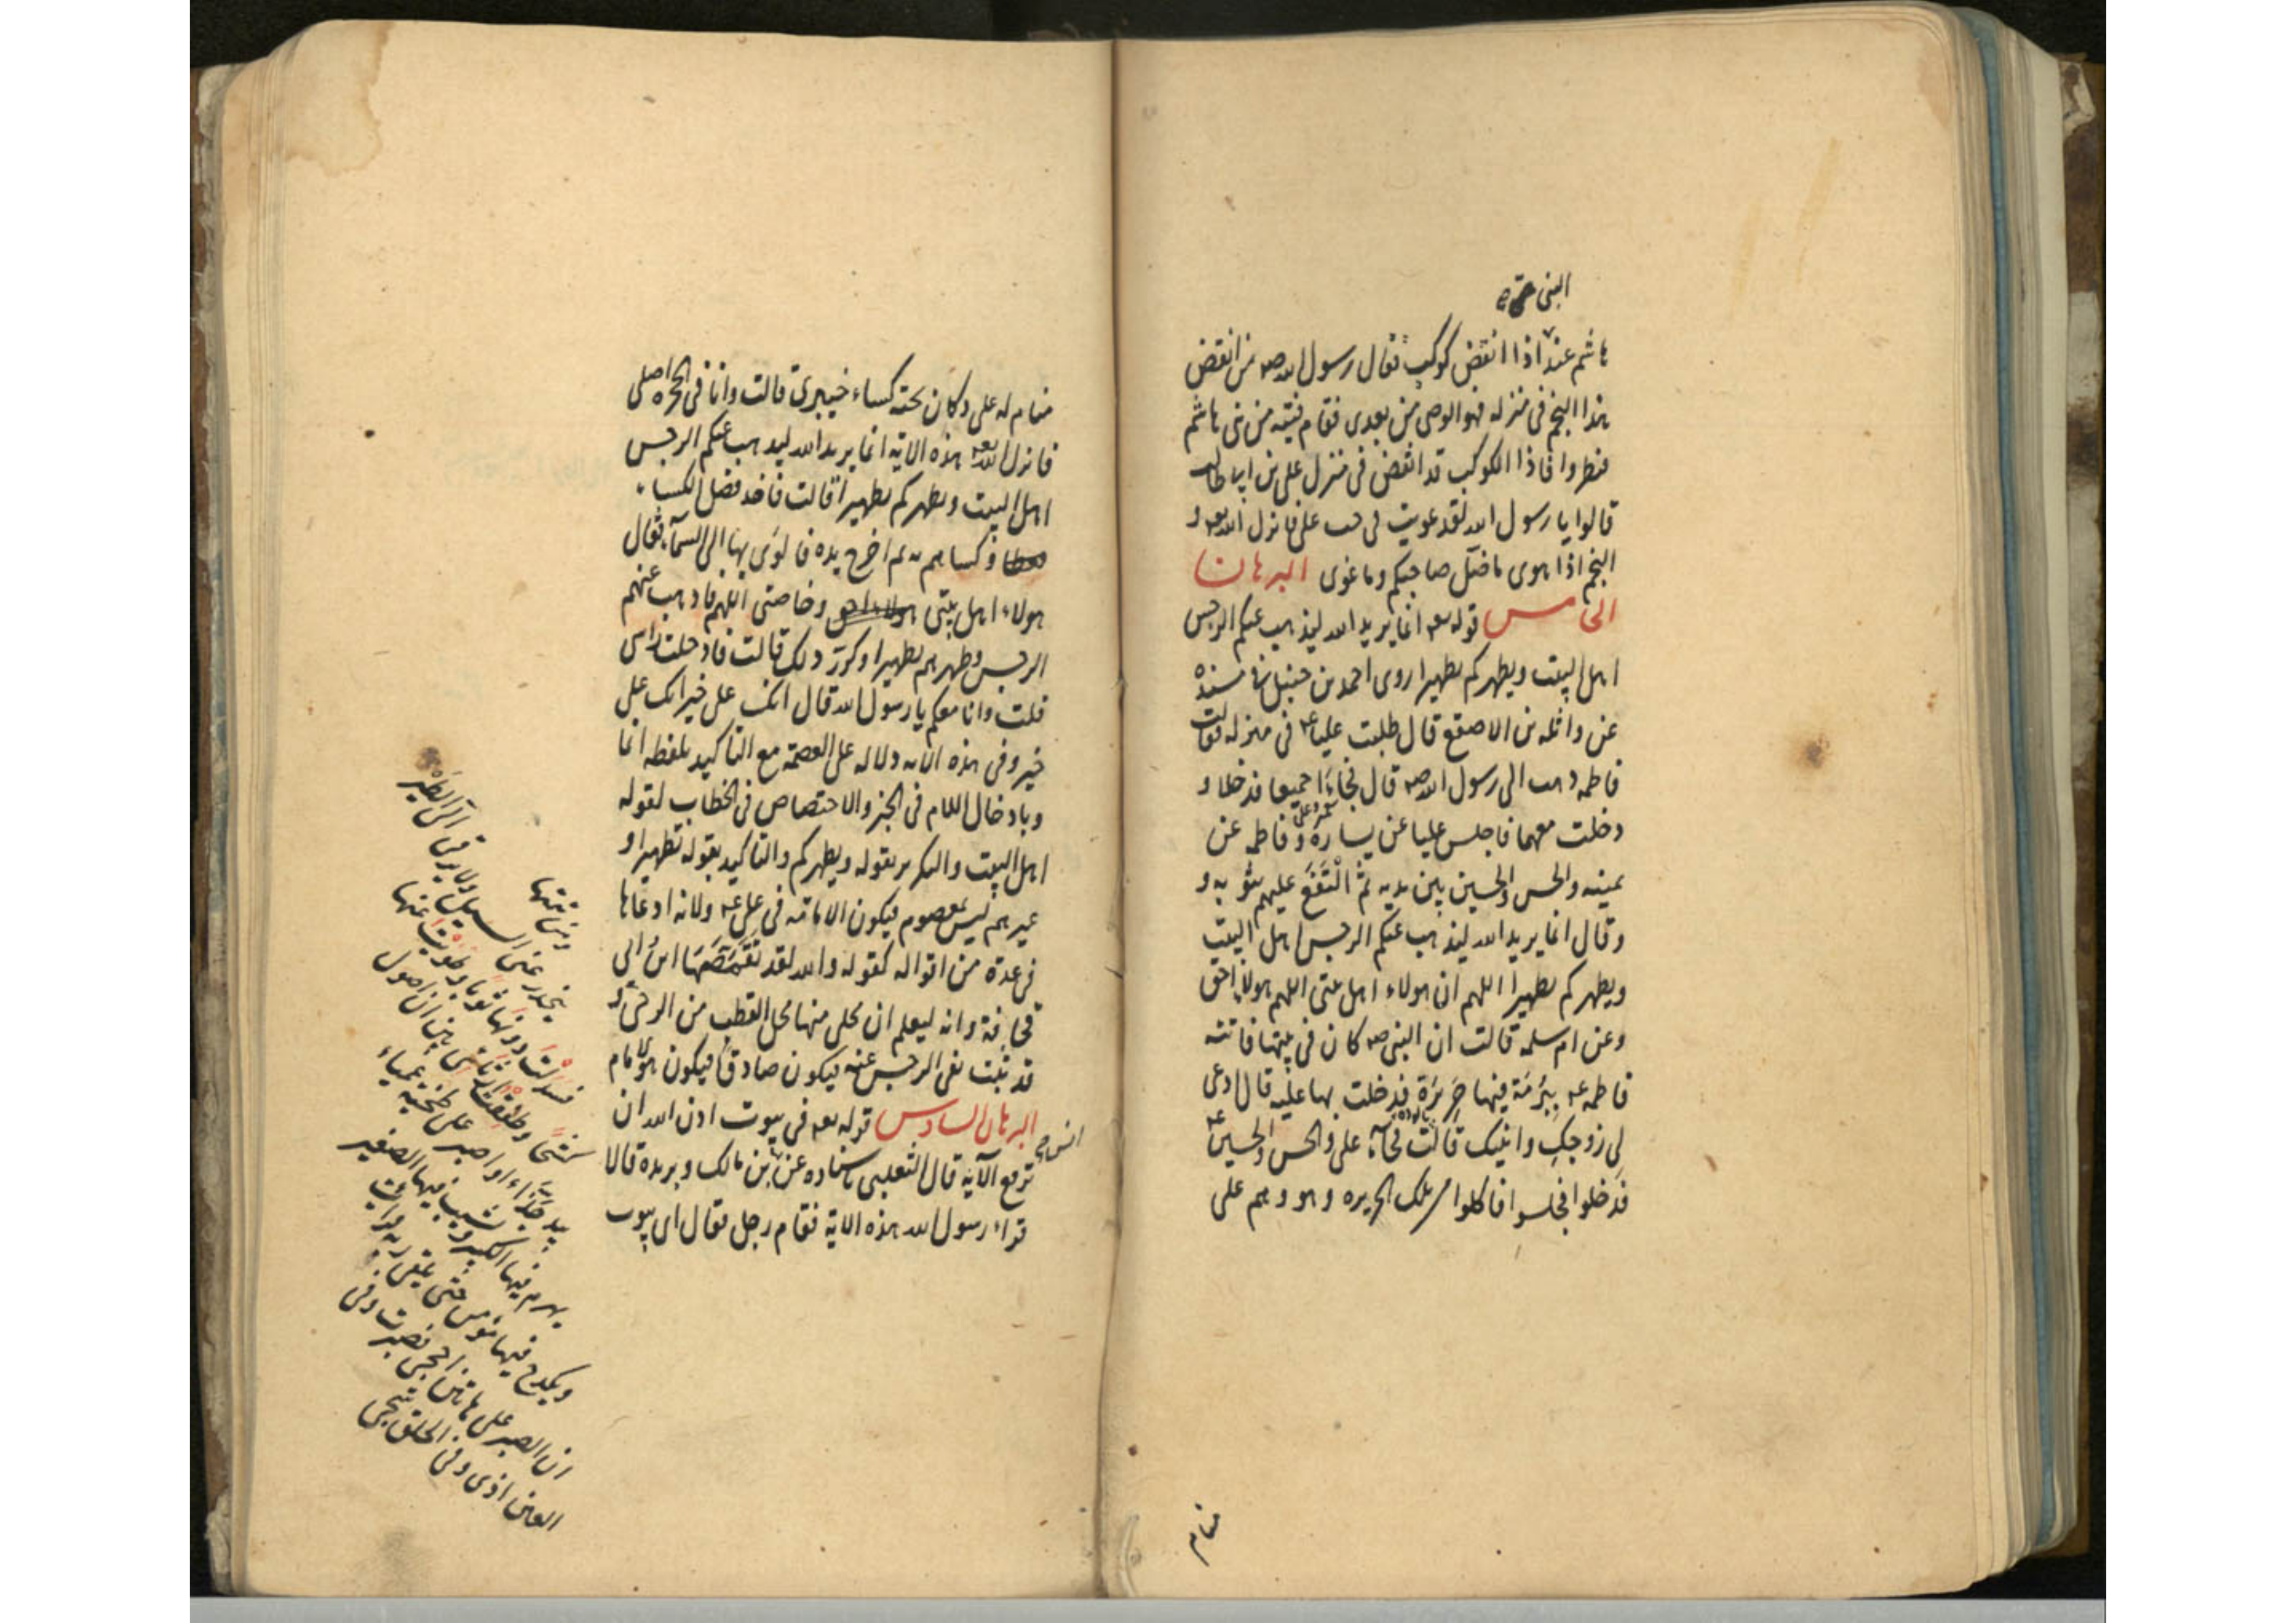 النبى صه
هاشم عند اذا انقض كوكب فقال رسول الله صه من انقض
هذا النجم فى منزله فهو الوصى من بعدى فقام فتية من بنى هاشم
فنظروا فاذا الكوكب قد انقض فى منزل على بن ابيطالب
قالوا يا رسول الله لقد غويت فى حب على فانزل الله تعه و
النجم اذا هوى ما ضل صاحبكم وما غوى البرهان
الخامس قوله تعه انما يريد الله ليذهب عنكم الرجس
اهل البيت ويطهركم تطهيرا روى احمد بن حنبل فى مسنده
عن واثله بن الاصقع قال طلبت عليا عه فى منزله فقالت
فاطمه ذهب الى رسول الله صه قال فجاءا جميعا فدخلا و
دخلت معهما فاجلس عليا عن يساره و فاطمه عن
يمينه والحسن والحسين بين يديه ثم التفع عليهم بثوبه و
وقال انما يريد الله ليذهب عنكم الرجس اهل البيت
ويطهركم تطهيرا اللهم ان هولاء اهل بيتى اللهم هولاء احق
وعن ام سلمه قالت ان النبى صه كان فى بيتها فاتته
فاطمه عه ببرمة فيها حريرة فدخلت بها عليه قال ادعى
لى زوجك وابنيك قالت فجآء على والحسن والحسين عه
فدخلوا فجلسوا فاكلوا من تلك الحريره وهو وهم على
منام
منام له على دكان تحته كساء خيبرى قالت وانا فى الحجره اصلى
فانزل الله تعه هذه الاية انما يريد الله ليذهب عنكم الرجس
اهل البيت ويطهركم تطهيرا قالت فاخذ فضل الكساء
وكساهم به ثم اخرج يده فالوى بها الى السمآء فقال
هولاء اهل بيتى وخاصتى اللهم فاذهب عنهم
الرجس وطهرهم تطهيرا وكرر ذلك قالت فادخلت راسى
قلت وانا معكم يا رسول الله قال انك على خير انك على
خير وفى هذه الايه دلاله على العصمة مع التاكيد بلفظه انما
وبادخال اللام فى الخبر والاختصاص فى الخطاب لقوله
اهل البيت والتكرير بقوله ويطهركم والتاكيد بقوله تطهيرا و
غيرهم ليس بمعصوم فيكون الامامة فى على عه ولانه ادعاها
فى عدة من اقواله كقوله والله لقد تقمصها ابن ابى
قحافة وانه ليعلم ان محلى منها محل القطب من الرحى و
قد ثبت نفى الرجس عنه فيكون صادقا فيكون هو الامام
البرهان السادس قوله تعه فى بيوت اذن الله ان
ترفع الآية قال الثعلبى باسناده عن بن مالك وبريده قالا
انس صح
قراء رسول الله هذه الاية فقام رجل فقال اى بيوت
ومن تتمتها
ينحدر عنى السيل ولا يرقى الى الطير
فسدلت دونها ثوبا وطويت عنها
كشحا وطفقت ارتئى بين ان اصول
بيد جذاء او اصبر على طخية عمياء
يهرم فيها الكبير ويشيب فيها الصغير
ويكدح فيها مؤمن حتى يلقى ربه فرايت
ان الصبر على هاتا احجى فصبرت وفى
العين اذى وفى الحلق شجى